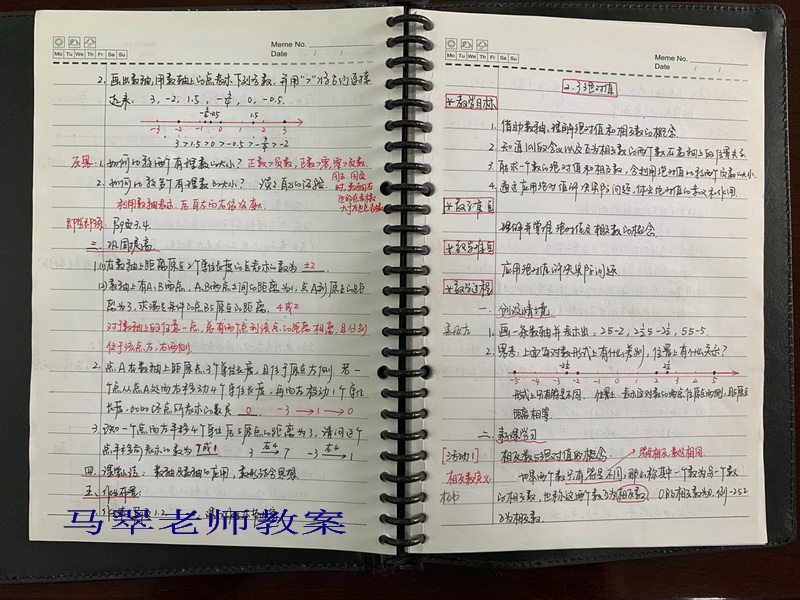 Meme No.
Mo Tu We Th Fr Sa Su
Date / /
2. 画出数轴,用数轴上的点表示下列各数,并用">"将它们连接
起来: 3, -2, 1.5, 0, -0.5.
-3 -2 -1 0 1 2 3
1. 如何比较两个有理数的大小? 正数>负数, 正数>零, 零>负数.
利用数轴表示
三、巩固提高
1.(1) 在数轴上距离原点2个单位长度的点表示的数为 ±2.
(2) 数轴上有A、B两点, A、B两点之间的距离为1, 点A到原点的距
离为3, 求满足条件的点B与原点的距离. 4或2
对于数轴上的任意一点, 总有两个点到该点的距离相等, 且分别
位于该点左、右两侧.
2. 点A在数轴上距原点3个单位长度, 且位于原点左侧. 若一
个点从点A处向右移动4个单位长度, 再向左移动1个单位
长度, 此时终点所表示的数是 0 -3→1→0
3. 一个点向右平移4个单位后与原点的距离为3, 请问这个
7或1 3 → 7 -3 → 1
四、课堂小结: 数轴及数轴的应用, 数形结合思想.
五、作业布置
马翠老师教案
Meme No.
Mo Tu We Th Fr Sa Su
Date / /
2.3 绝对值
教学目标
1. 借助数轴, 理解绝对值和相反数的概念.
2. 知道|a|的含义以及互为相反数的两个数在数轴上的位置关系.
3. 能求一个数的绝对值和相反数, 会利用绝对值比较两个负数的大小.
4. 通过应用绝对值解决实际问题, 体会绝对值的意义和作用.
教学重点
理解并掌握绝对值及相反数的概念.
教学难点
应用绝对值解决实际问题.
教学过程
一、创设情境
1. 画一条数轴并表示出: 2与-2, 5与-5.
2. 思考: 上面每对数形式上有什么差别, 位置上有什么关系?
-5 -4 -3 -2 -1 0 1 2 3 4 5
形式上只有符号不同. 位置上, 表示这对数的两点位于原点两侧, 且距原点
距离相等.
二、新课学习
[活动1] 相反数与绝对值的概念.
相反数定义: 如果两个数只有符号不同, 那么称其中一个数为另一个数
的相反数, 也称这两个数互为相反数. 0的相反数为0. 例-2与2
互为相反数.